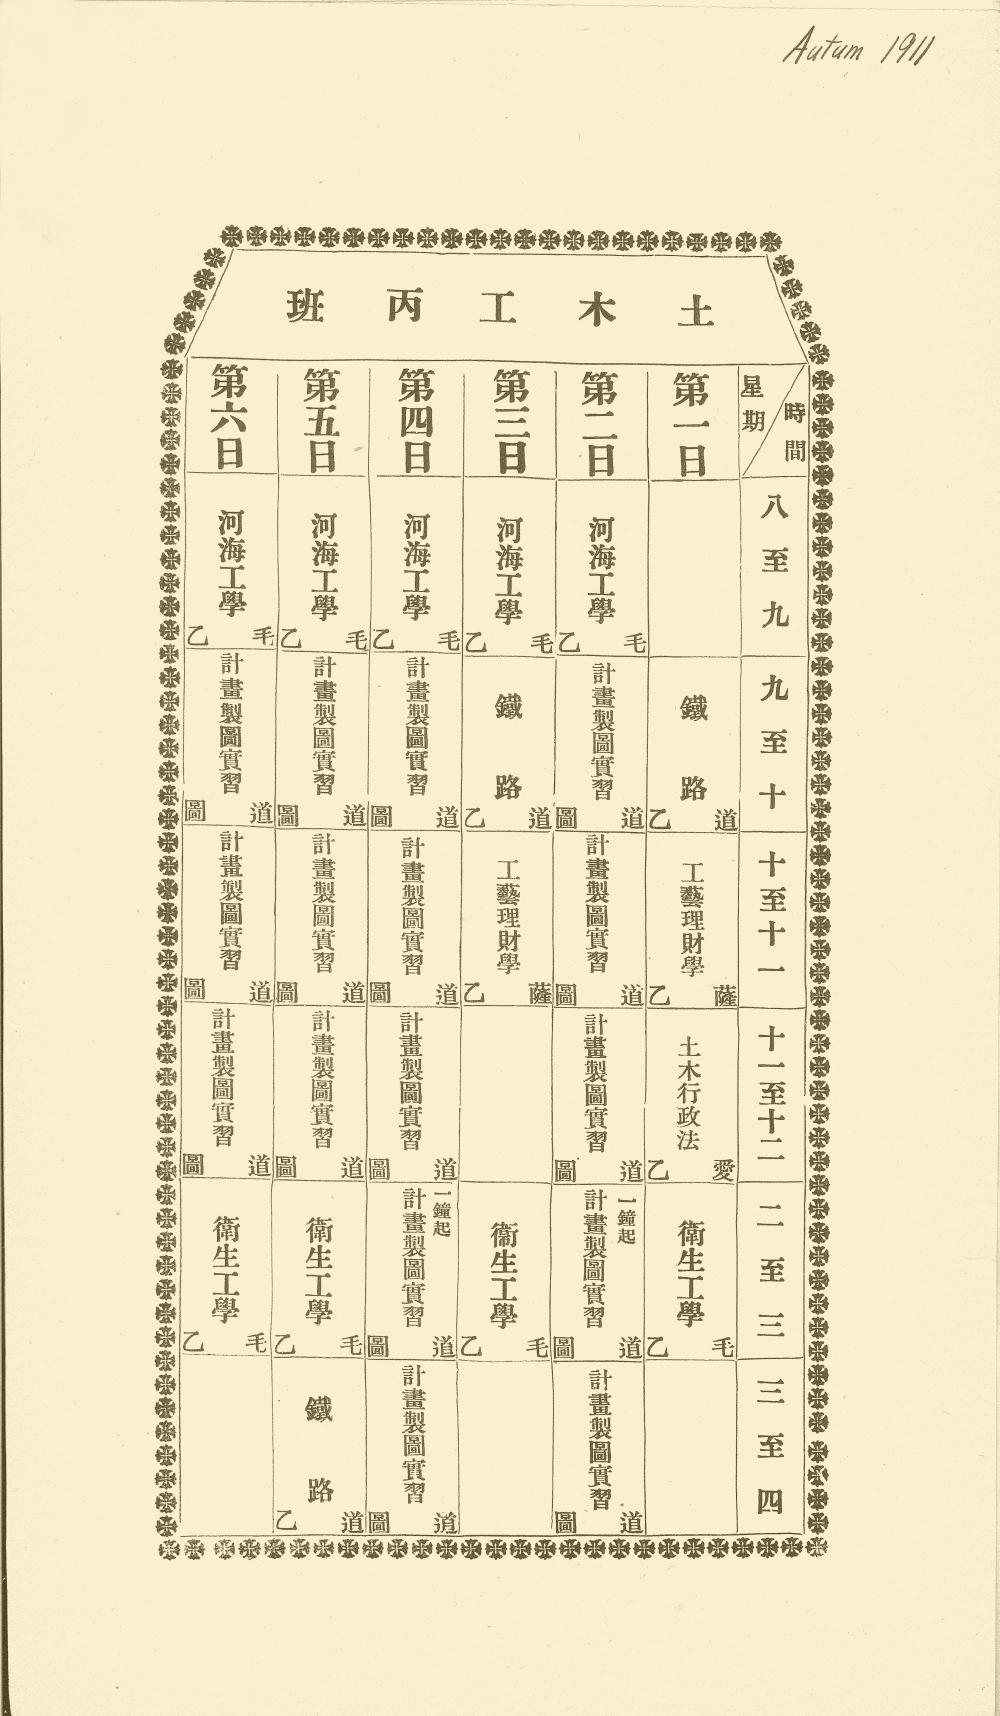 Autum 1911
土木工丙班
時間
星期
第一日
第二日
第三日
第四日
第五日
第六日
八至九
河海工學
毛
乙
河海工學
毛
乙
河海工學
毛
乙
河海工學
毛
乙
河海工學
毛
乙
九至十
鐵路
道
乙
計畫製圖實習
道
圖
鐵路
道
乙
計畫製圖實習
道
圖
計畫製圖實習
道
圖
計畫製圖實習
道
圖
十至十一
工藝理財學
薩
乙
計畫製圖實習
道
圖
工藝理財學
薩
乙
計畫製圖實習
道
圖
計畫製圖實習
道
圖
計畫製圖實習
道
圖
十一至十二
土木行政法
愛
乙
計畫製圖實習
道
圖
計畫製圖實習
道
圖
計畫製圖實習
道
圖
計畫製圖實習
道
圖
二至三
衛生工學
毛
乙
一鐘起
計畫製圖實習
道
圖
衛生工學
毛
乙
一鐘起
計畫製圖實習
道
圖
衛生工學
毛
乙
衛生工學
毛
乙
三至四
計畫製圖實習
道
圖
計畫製圖實習
道
圖
鐵路
道
乙